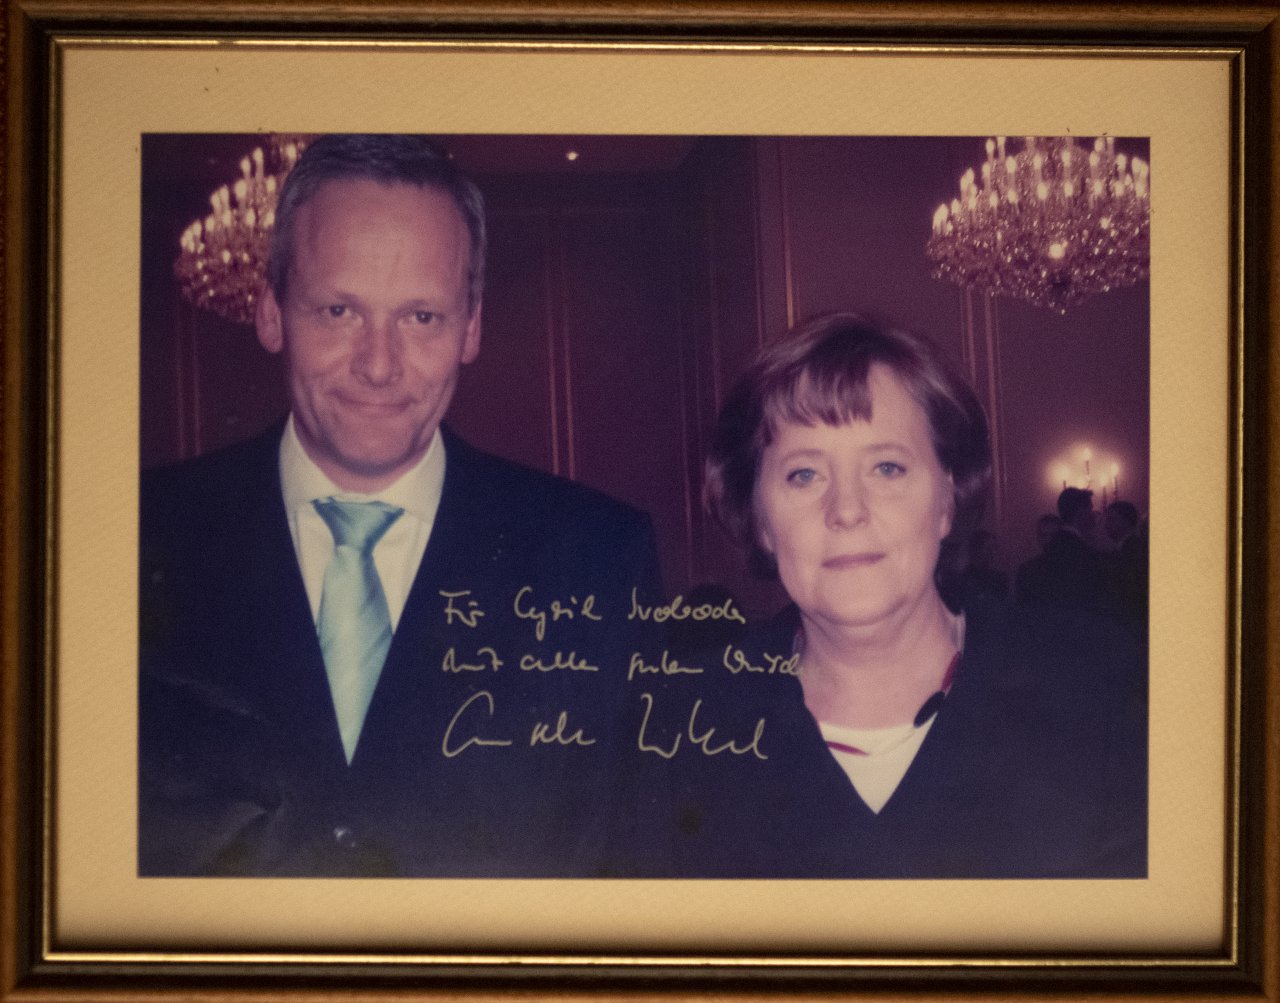 Für Cyril Svoboda
mit allen guten Wünschen
Angela Merkel